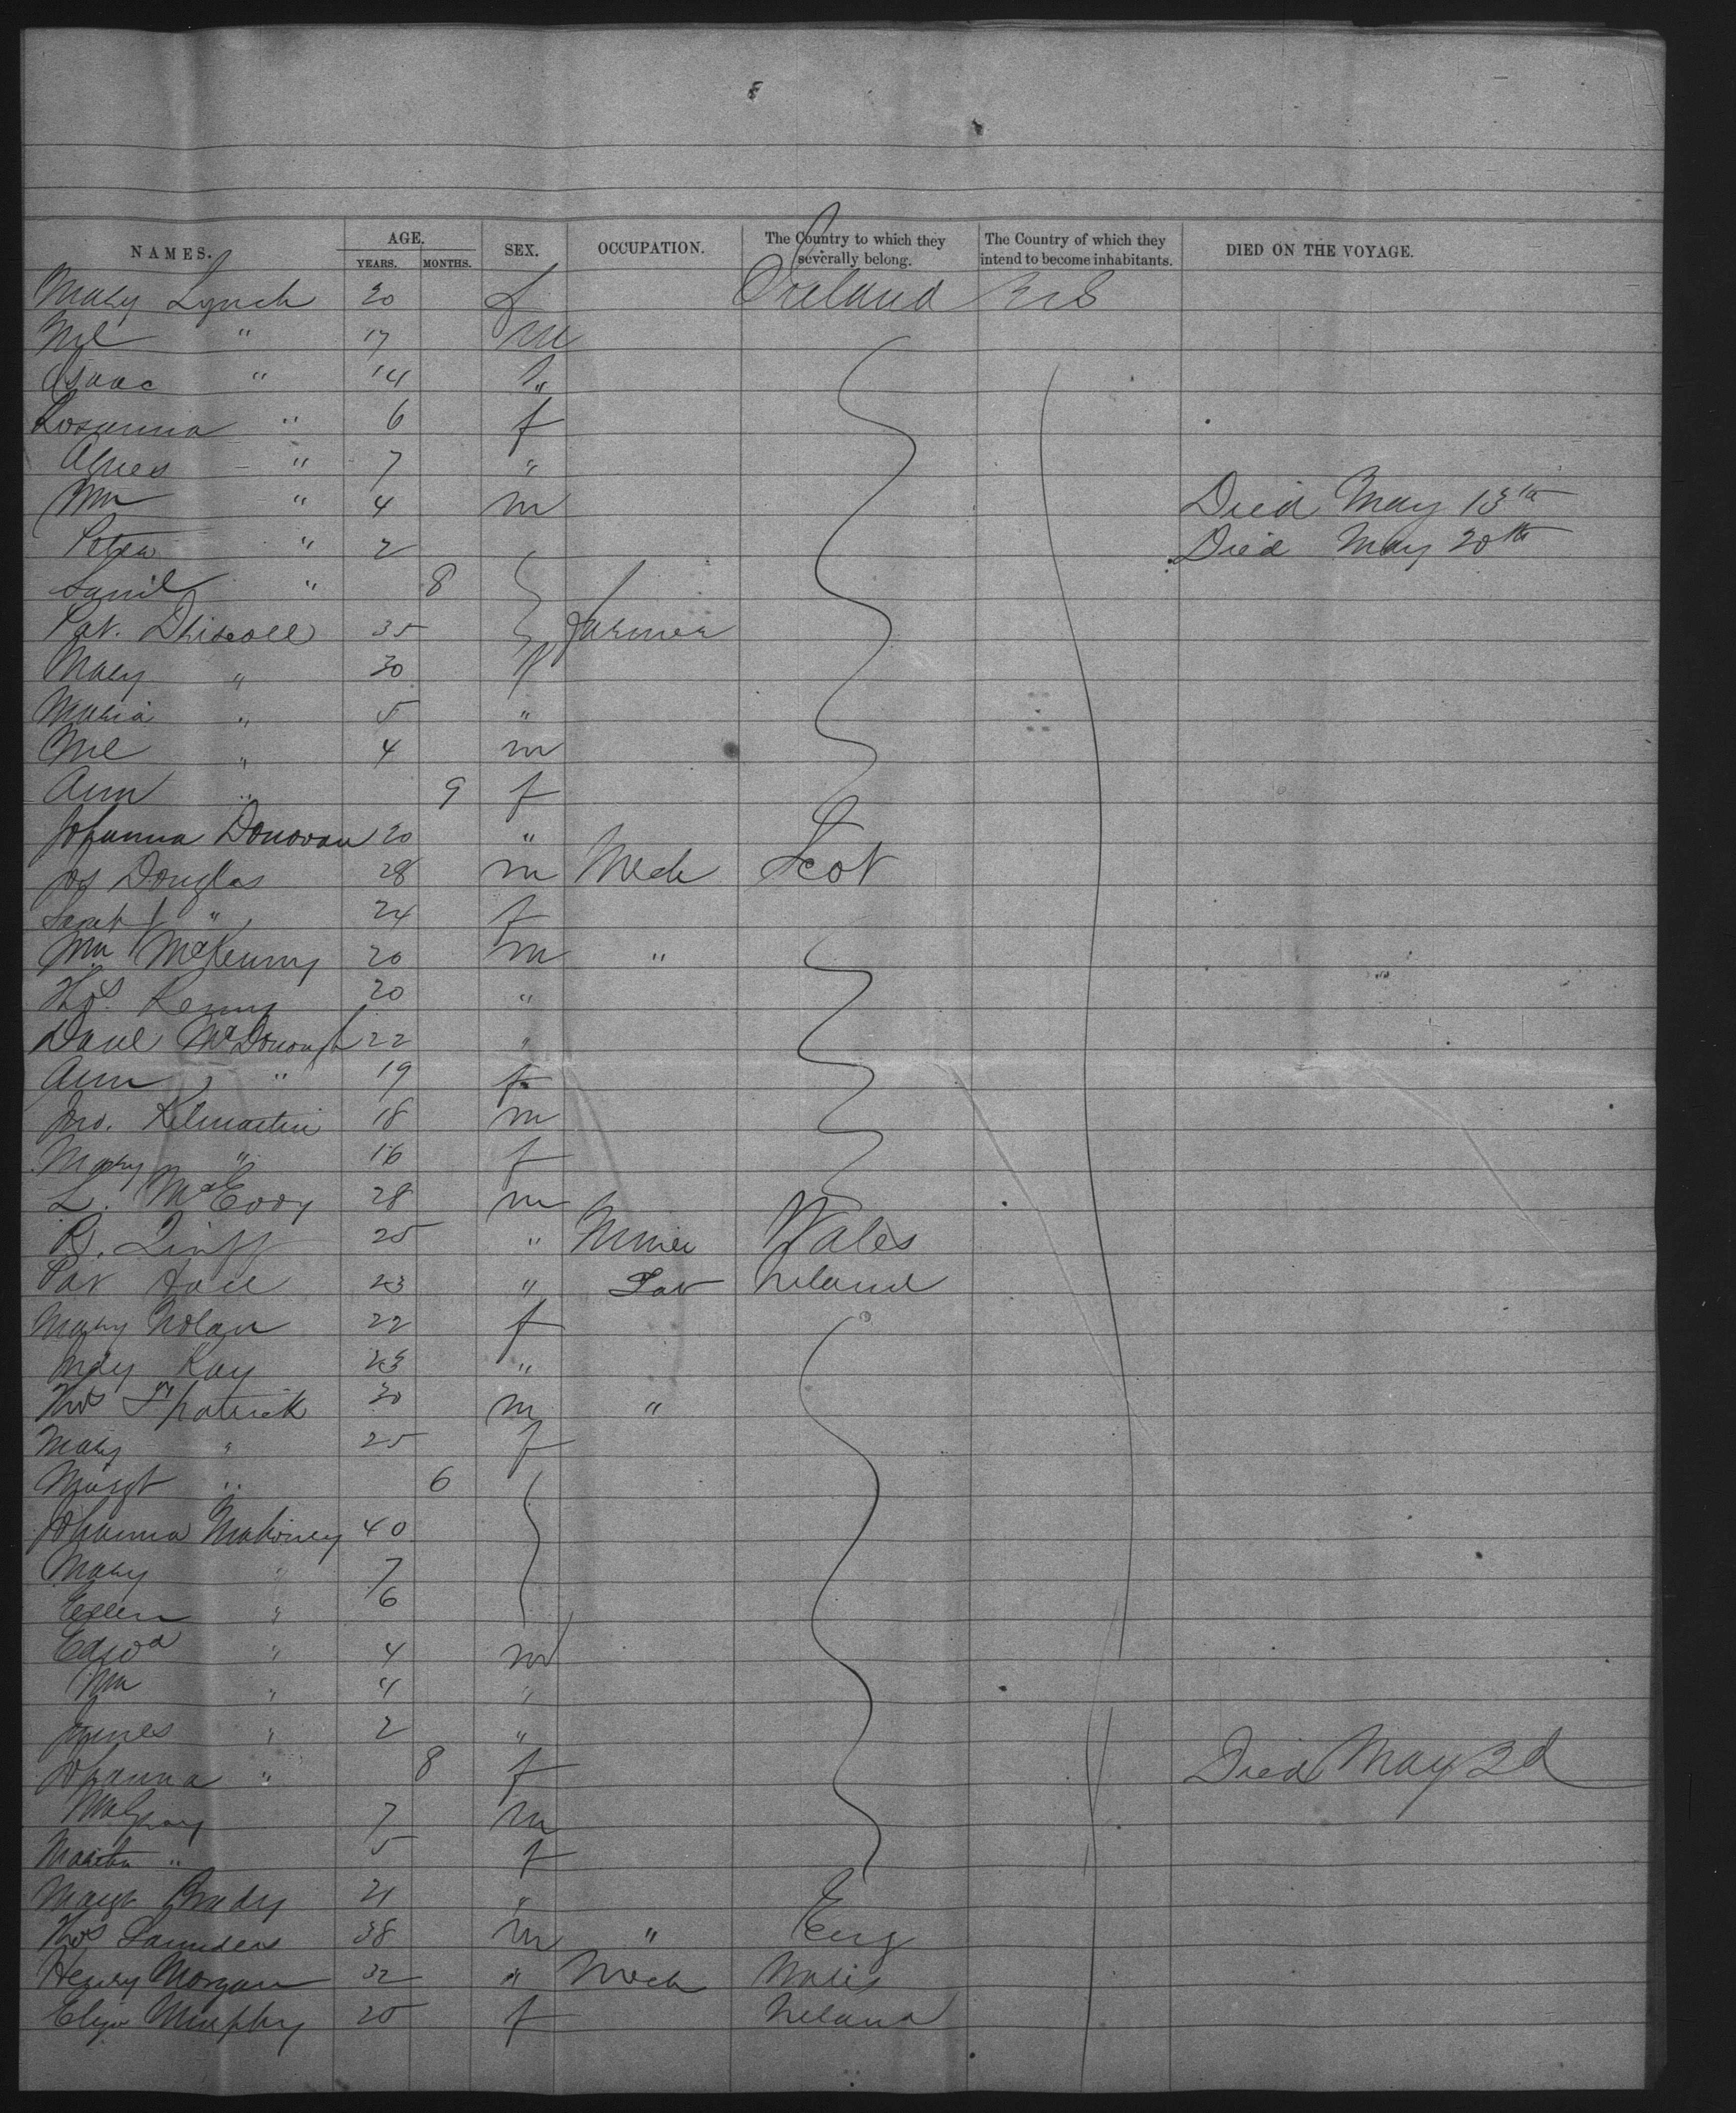 NAMES. AGE. YEARS. MONTHS. SEX. OCCUPATION. The Country to which they severally belong. The Country of which they intend to become inhabitants. DIED ON THE VOYAGE.
Mary Lynch 20 f Ireland U S
" 17 M
Isaac " 14 "
Rosanna " 6 f
Agnes " 7 "
Wm " 4 m Died May 13th
Peter " 2 Died May 20th
Saml " 8
Pat. Driscoll 35 Farmer
Mary " 30 f
Maria " 5 "
" 4 m
Ann " 9 f
Johanna Donovan 20 "
Js Douglas 28 m Mech Scot
Sarah " 24 f
Wm McKenny 20 m "
Thos. Kenny 20 "
Danl McDonough 22 "
Ann " 19 f
Jno. Kilmartin 18 m
Mary " 16 f
L. McEvoy 28 m
R. 25 " Miner Wales
Pat 23 " Lab Ireland
Mary Nolan 22 f
Mary Kay 23 "
Thos Fpatrick 30 m "
Mary " 25 f
Margt " 6
Johanna Mahoney 40
Mary " 7
Ellen " 6
Edwd " 4 m
Wm " 4 "
James " 2 "
Johanna " 8 f Died May 3d
7 m
Martha " 5 f
Margt Brady 21 "
Thos Saunders 38 m " Eng
Henry Morgan 32 " Mech Wales
Eliza Murphy 20 f Ireland